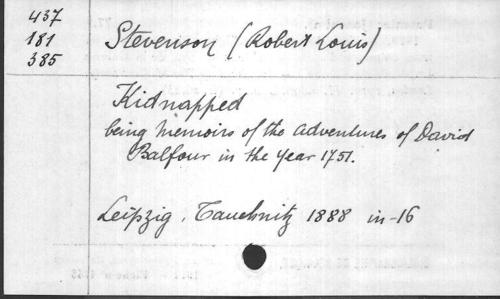 437
181
385
Stevenson (Robert Louis)
Kidnapped
being memoirs of the adventures of David
Balfour in the year 1751.
Leipzig, Tauchnitz 1888 in-16